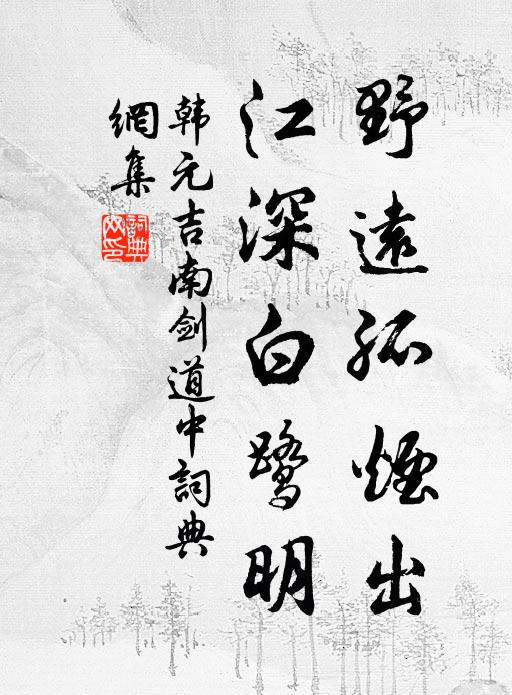 野遠孤煙出
江深白鷺明
韩元吉南剑道中詞典
網集
詞典
网印